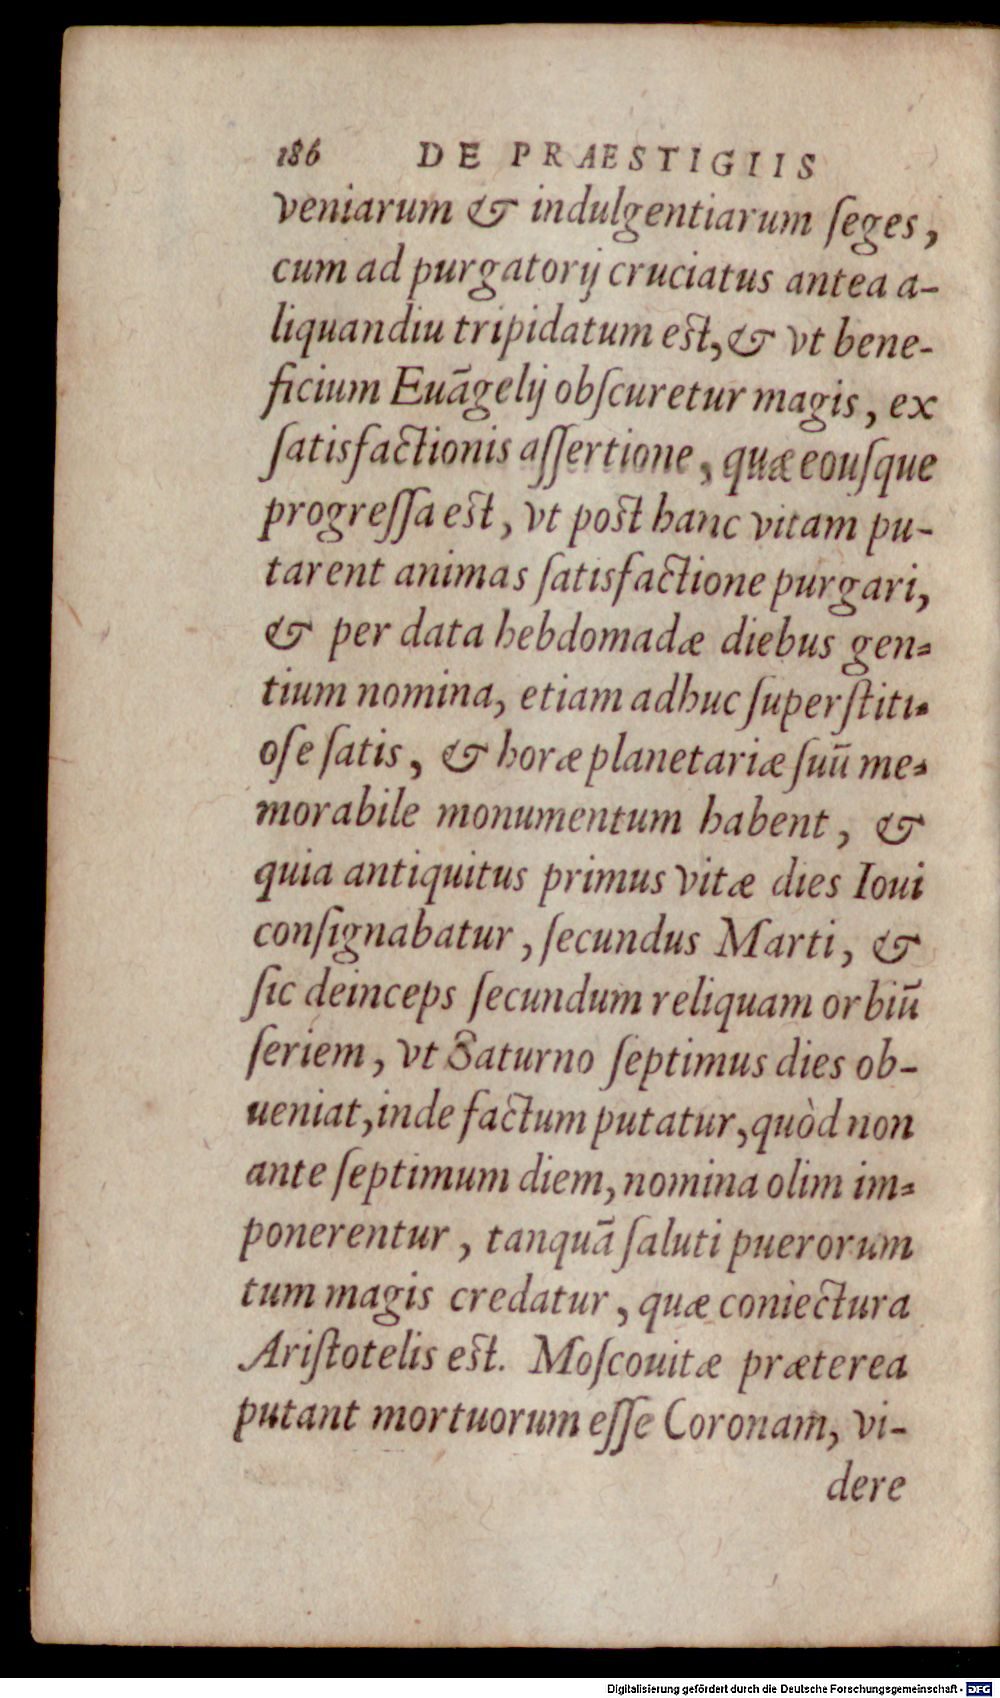 186 DE PRAESTIGIIS
veniarum & indulgentiarum ſeges,
cum ad purgatorij cruciatus antea a-
liquandiu tripidatum est, & vt bene-
ficium Euãgelij obſcuretur magis, ex
ſatisfactionis aſſertione, quæ eouſque
progreſſa est, vt post hanc vitam pu-
tarent animas ſatisfactione purgari,
& per data hebdomadæ diebus gen-
tium nomina, etiam adhuc ſuperſtiti-
oſe ſatis, & horæ planetariæ ſuũ me-
morabile monumentum habent, &
quia antiquitus primus vitæ dies Ioui
conſignabatur, ſecundus Marti, &
ſic deinceps ſecundum reliquam orbiũ
ſeriem, vt Saturno ſeptimus dies ob-
ueniat, inde factum putatur, quòd non
ante ſeptimum diem, nomina olim im-
ponerentur, tanquã ſaluti puerorum
tum magis credatur, quæ coniectura
Ariſtotelis est. Moſcouitæ præterea
putant mortuorum eſſe Coronam, vi-
dere
Digitalisierung gefördert durch die Deutsche Forschungsgemeinschaft - DFG